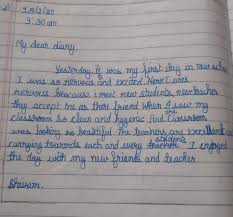 9:30 am
My dear diary,
Yesterday, It was my first day in new school
I was so nervous and excited. Nervous
nervous because i meet new students, new teacher
they accept me as their friend when I saw my
classroom so clean and hygenic and classroom
was looking so beautiful The teachers are excellent
carrying towards each and every students I enjoyed
the day with my new friends and teacher.
Shivam.